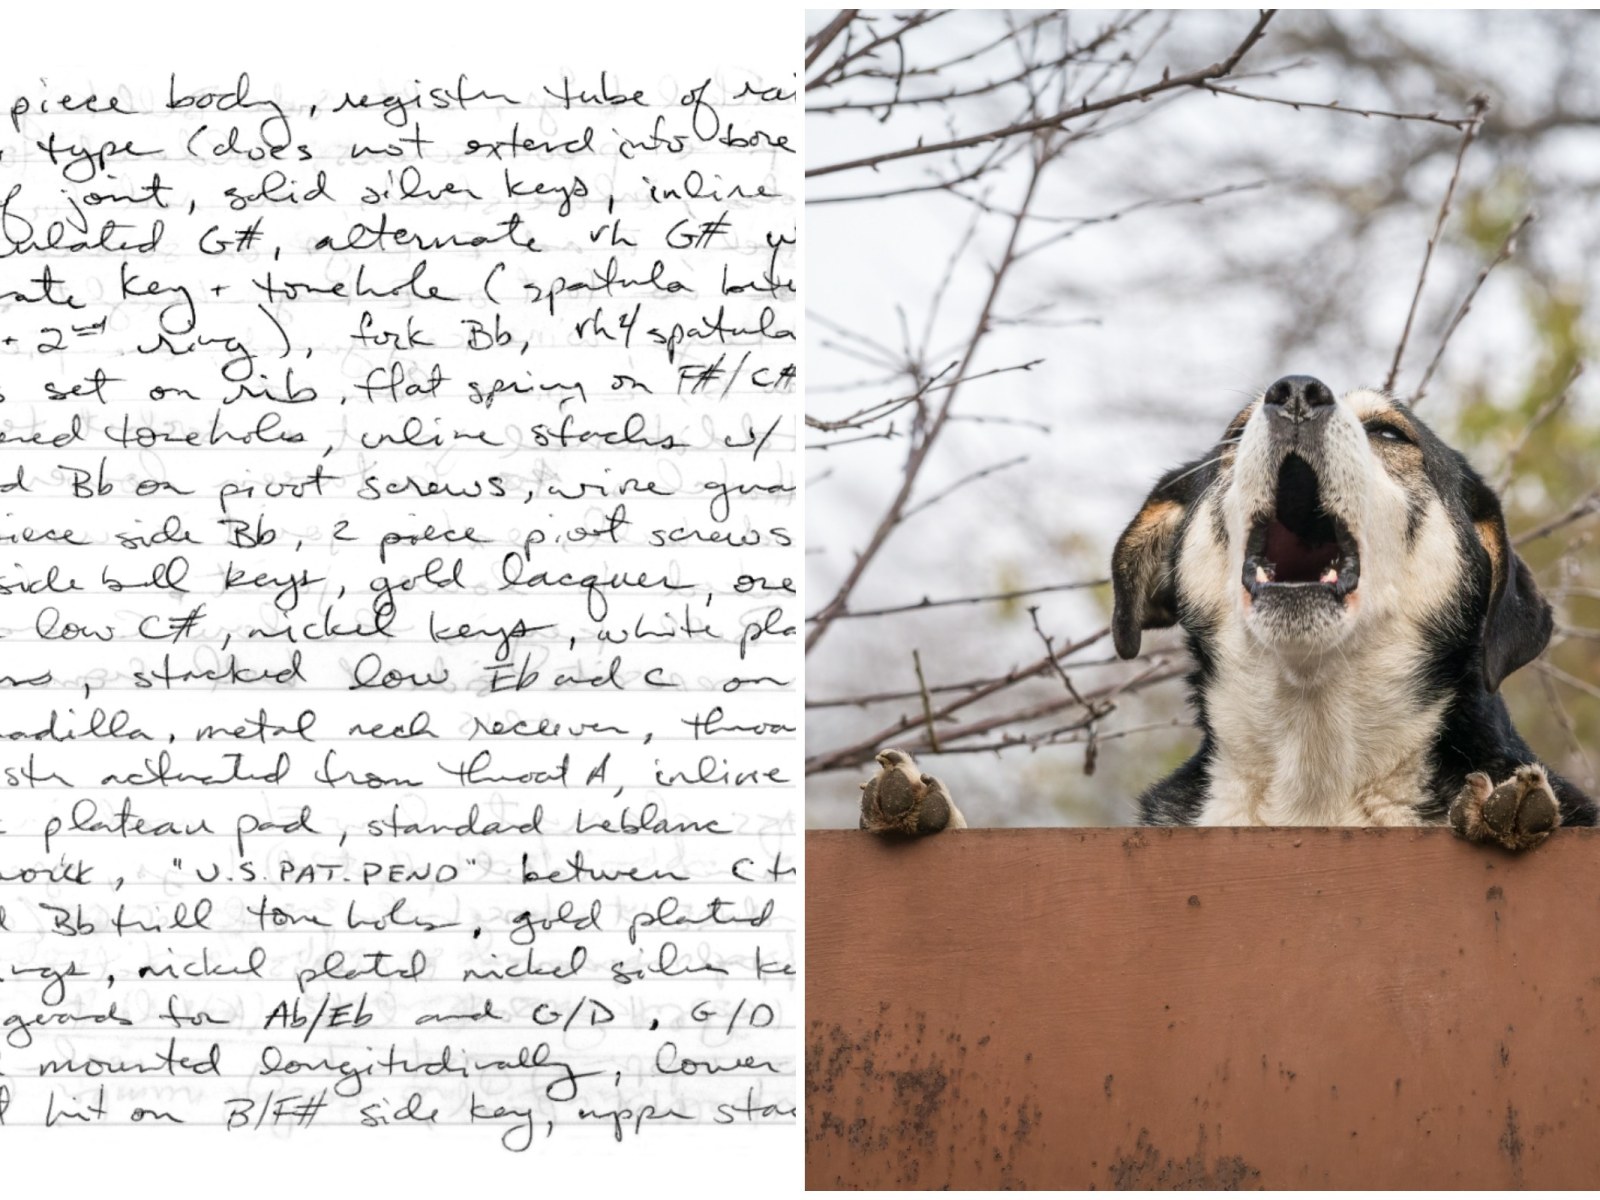 piece body, register tube of rai
type (does not extend into bore
of joint, solid silver keys, inline
ulated G#, alternate rh G# w
ate key + tonehole (spatula betw
+ 2nd ring), fork Bb, rh4 spatula
s set on rib, flat spring on F#/C#
ered toneholes, inline stacks w/
d Bb on pivot screws, wire gua
iece side Bb, 2 piece pivot screws
side bell keys, gold lacquer, one
low C#, nickel keys, white pla
ms, stacked low Eb and C on
nadilla, metal neck receiver, throa
str actuated from throat A, inline
plateau pad, standard Leblanc
work, "U.S.PAT.PEND" between C tr
d Bb trill tone holes, gold plated
ings, nickel plated nickel silver ke
guards for Ab/Eb and G/D, G/D
mounted longitudinally, lower
hit on B/F# side key, upper stac